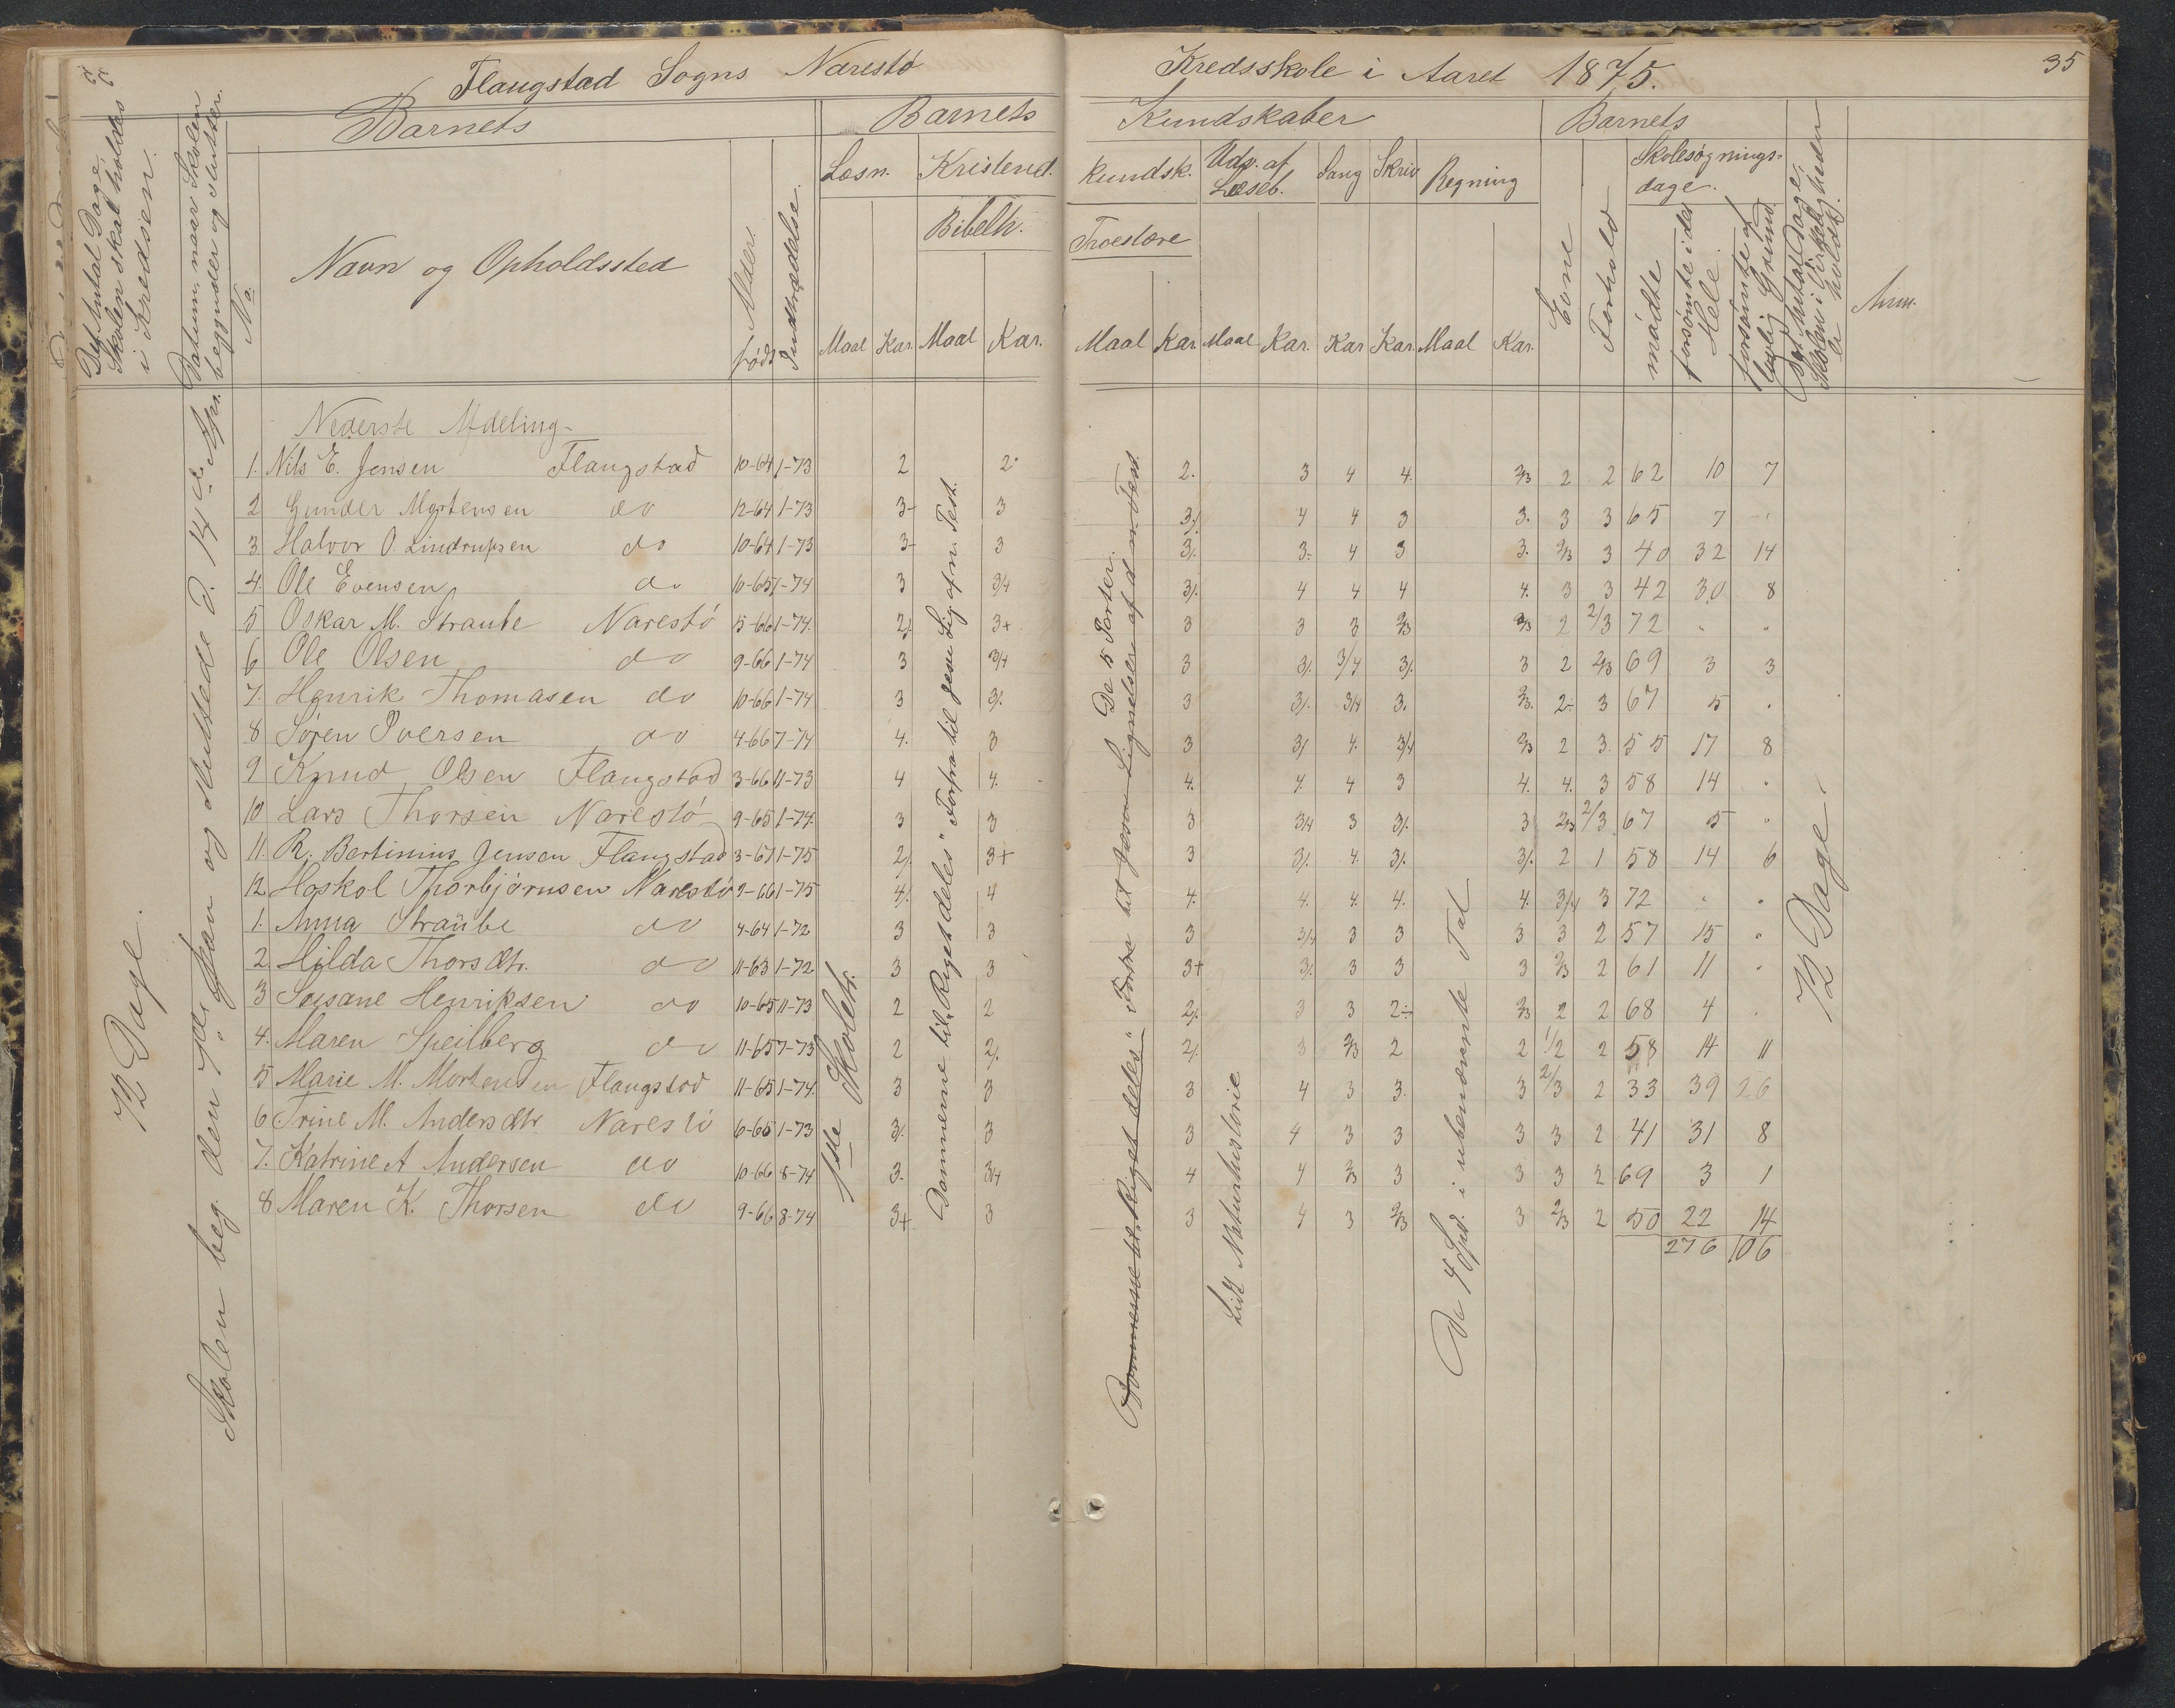 Flaugstad Sogns Narestö Kredsskole i Aaret 1875. 35
Det Antal Dage Skolen skal holdes i Kredsen.
Datum, naar Skolen begynder og slutter.
Barnets Barnets Kundskaber Barnets
No. Navn og Opholdssted Alder. født Indtrædelse.
Læsn. Kristend. kundsk. Udv. af Læseb. Sang Skriv Regning
Bibelh. Troeslære
Maal Kar. Maal Kar. Maal Kar Maal Kar. Kar Kar. Maal Kar.
Evne Forhold Skolesøgnings-dage.
mödte forsömte i det Hele. forsömte af lovlig Grund.
Det Antal Dage Skolen i Virkeligheden er holdt.
Anm.
Nederste Afdeling
1. Nils E. Jensen Flaugstad 10-64 1-73 2 2 2. 3 4 4. 2/3 2 2 62 10 7
2 Gunder Mortensen do 12-64 1-73 3- 3 3/. 4 4 3 3. 3 3 65 7 "
3 Halvor O. Lindrupsen do 10-64 1-73 3- 3 3/. 3- 4 3 3. 2/3 3 40 32 14
4. Ole Evensen do 10-65 1-74 3 3/4 3/. 4 4 4 4. 3 3 42 30 8
5 Oskar M. Straube Narestö 5-66 1-74. 2/. 3+ 3 3 3 2/3 2/3 2 2/3 72 " "
6 Ole Olsen do 9-66 1-74 3 3/4 3 3/. 3/4 3/. 3 2 2/3 69 3 3
7. Henrik Thomasen do 10-66 1-74 3 3/. 3 3/. 3/4 3. 2/3. 2÷ 3 67 5 "
8 Søren Iversen do 4-66 7-74 4. 3 3 3/ 4. 3/4 2/3 2 3. 55 17 8
9 Knud Olsen Flaugstad 3-66 11-73 4 4. 4. 4. 4 3 4. 4. 3 58 14 "
10 Lars Thorsen Narestö 9-65 1-74. 3 3 3 3/4 3 3/. 3 2/3 2/3 67 5 "
11. R. Bertinius Jensen Flaugstad 3-67 1-75 2/. 3+ 3 3/. 4. 3/. 3/. 2 1 58 14 6
12. Hoskol Thorbjörnsen Narestö 9-66 1-75 4/. 4 4. 4. 4. 4. 4. 3/4 3 72 " "
1. Anna Straübe do 4-64 1-72 3 3 3 3/4 3 3 3 3 2 57 15 "
2. Hilda Thorsdtr. do 11-63 1-72 3 3 3+ 3/. 3 3 3 2/3 2 61 11 "
3 Susane Henriksen do 10-65 11-73 2 2 2/. 3 3 2÷ 2/3 2 2 68 4 "
4. Maren Speilberg do 11-65 7-73 2 2/. 2/. 3 2/3 2 2 1/2 2 58 14 11
5 Marie M. Mortensen Flaugstad 11-65 1-74. 3 3 3 4 3 3. 3 2/3 2 33 39 26
6 Trine M. Andersdtr Narestö 6-65 1-73 3/. 3 3 4 3 3 3 3 2 41 31 8
7. Katrine A Andersen do 10-66 8-74 3. 3/4 4 4 2/3 3 3 3 2 69 3 1
8 Maren K. Thorsen do 9-66 8-74 3+ 3 3 4 3 2/3 3 2/3 2 50 22 14
276 106
72 Dage.
Skolen beg. den 7de Jan og sluttede d. 14de Apr.
1ste Skoletr.
Dommerne til "Riget deles" Forfra til Jesu Lig. af n. Test.
Dommerne til "Riget deles" Forfra til Jesu Lignelser af d. n. Test.
De 5 Parter.
Lidt Naturhistorie
De 4 Spd. i ubenævnte Tal
72 Dage.